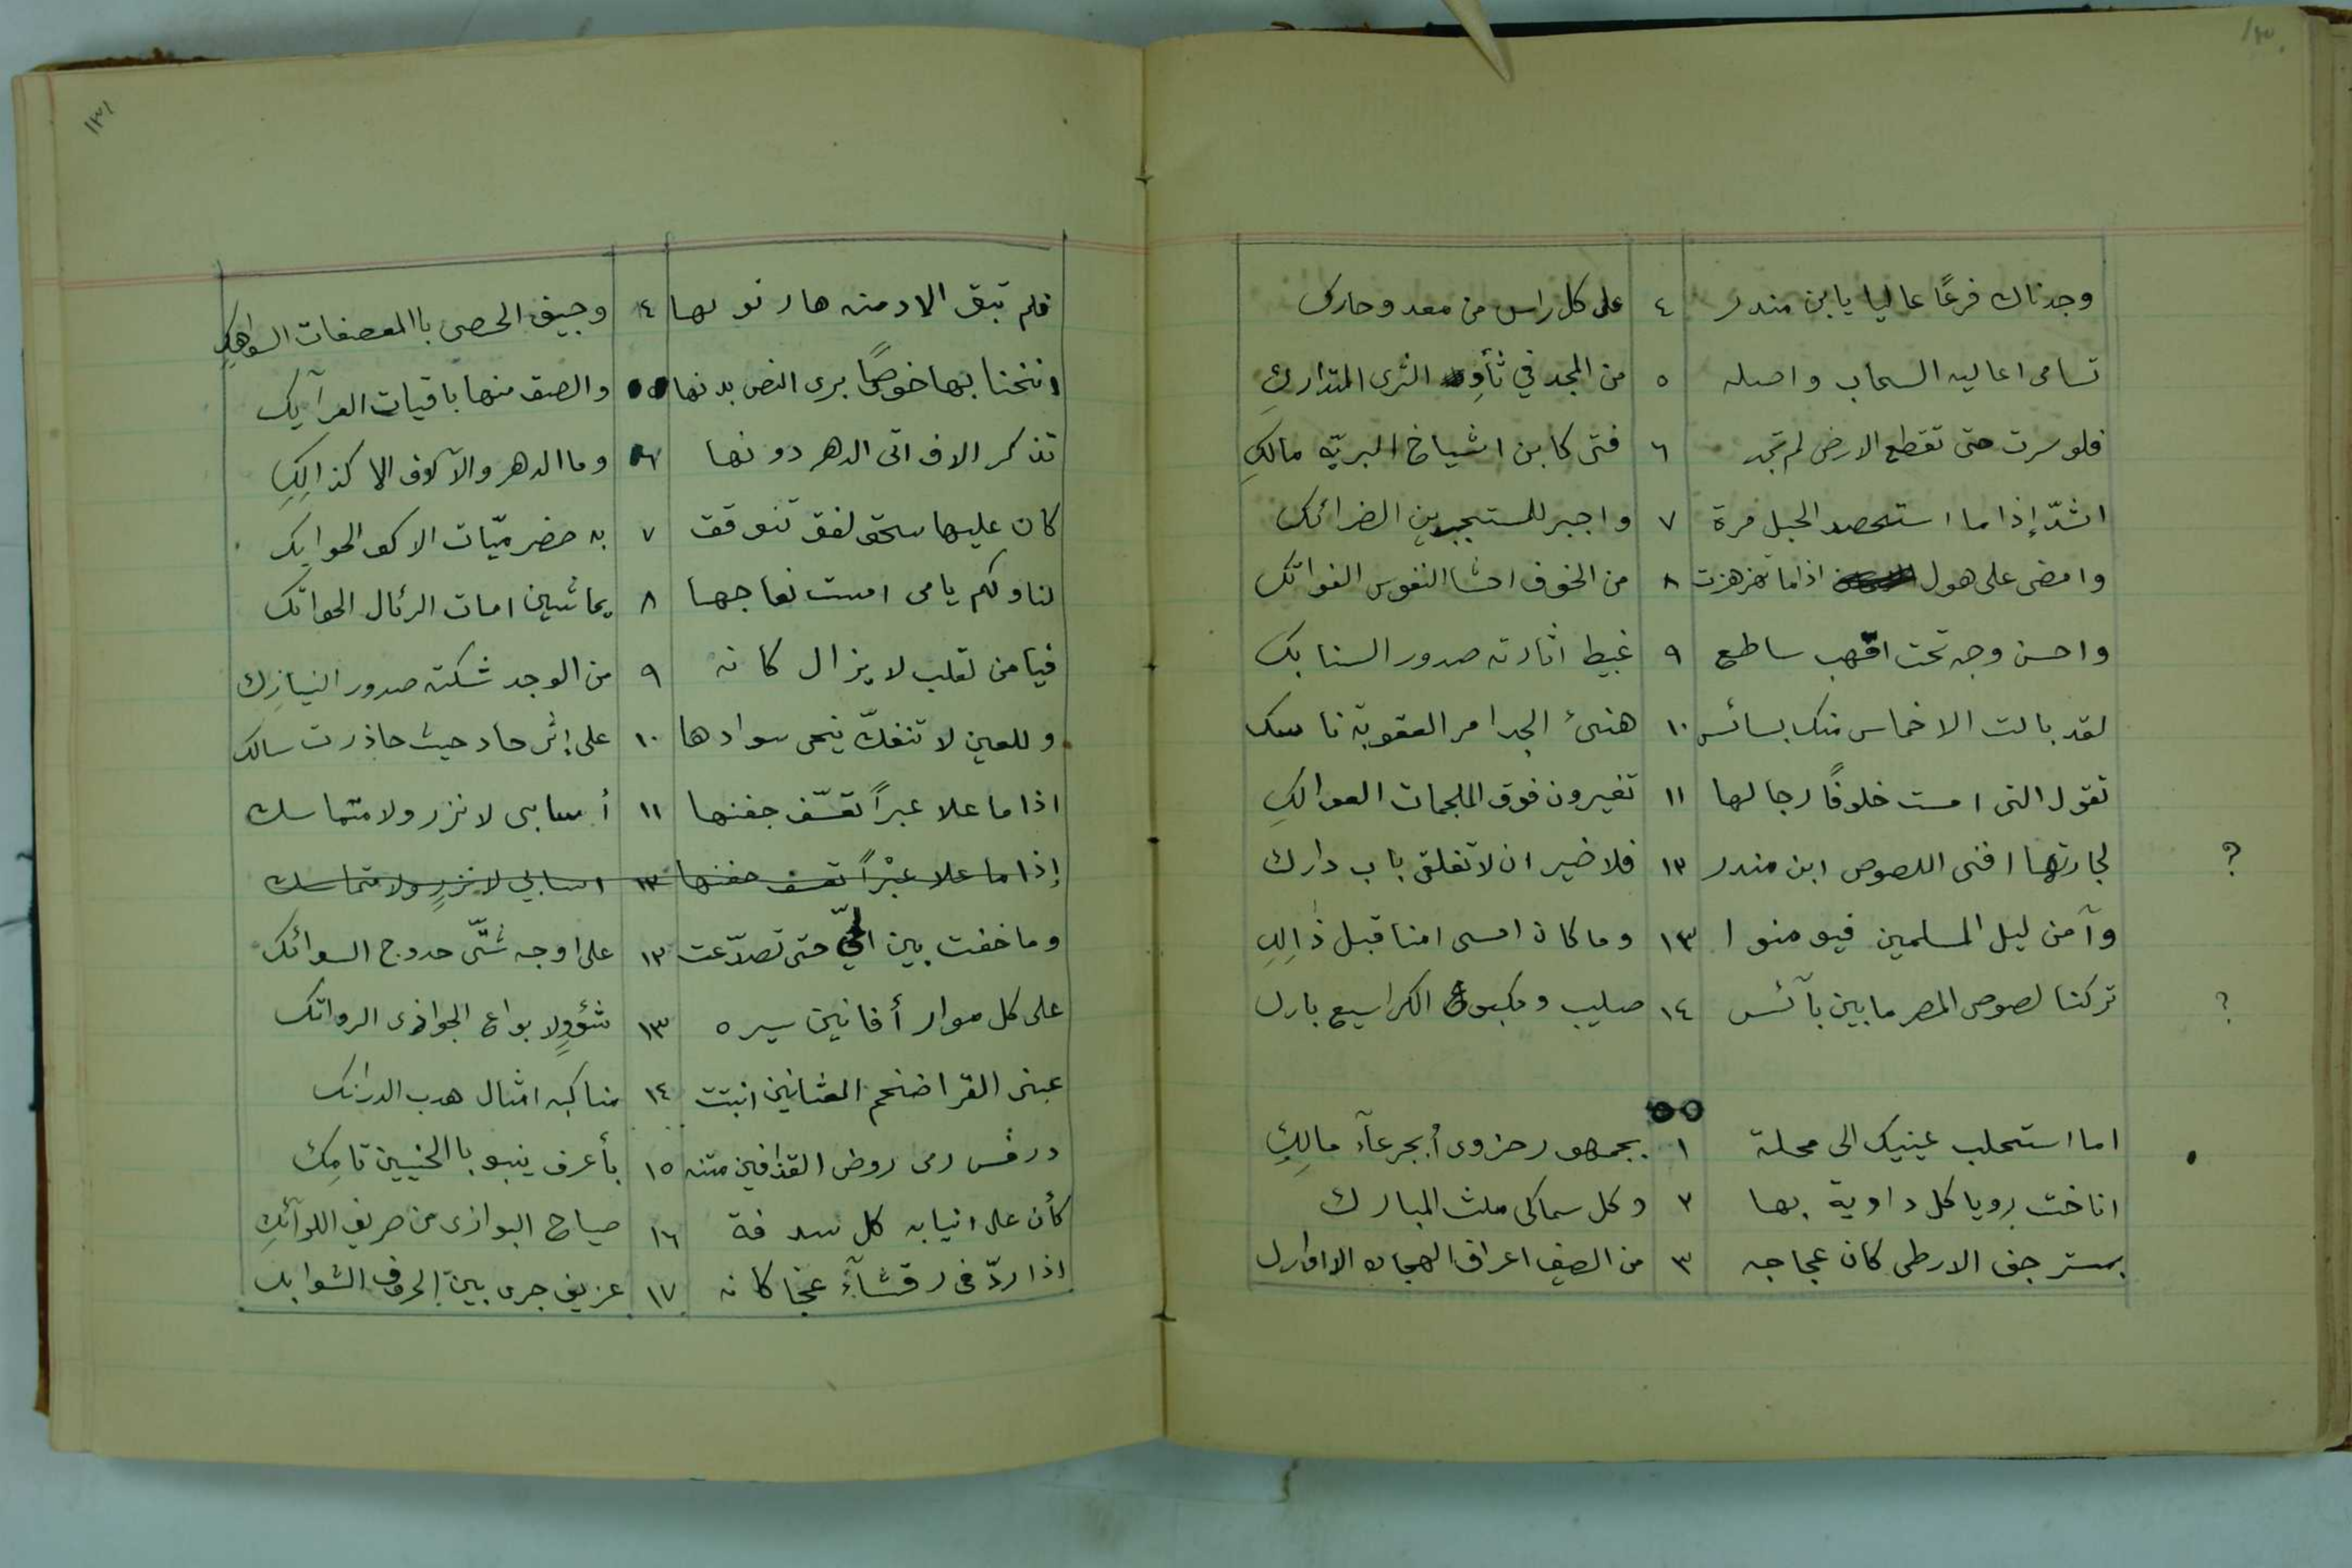 ١٣٠
وجدناك فرعًا عاليا يابن منذر ٤ على كل راس من معد وحارك
تسامى اعاليه السحاب واصله ٥ من المجد في ثأد الثرى المتداركِ
فلو سرت حتى تقطع الارض لم تجد ٦ فتى كابن اشياخ البريّه مالكِ
اشدّ إذا ما استحصد الحبل مرة ٧ واجبر للمستجبرين الضرائك
وامضى على هول اذا ما تهزهزت ٨ من الخوف احشا النفوس الفواتك
واحسن وجه تحت اقهب ساطع ٩ غبيط اثارته صدور السنابك
لقد بالت الاخماس منك بسائس ١٠ هنئ الجدا مر العقوبة ناسك
تقول التى امست خلوفًا رجالها ١١ تغيرون فوق الملجمات العوالكِ
لجارتها افنى اللصوص ابن منذر ١٢ فلا ضير ان لا تغلق باب دارك
؟
وآمن ليل المسلمين فيومنوا ١٣ وما كان امسى امنا قبل ذٰالِكِ
تركنا لصوص المصر ما بين بآئس ١٤ صليب ومكبوع الكراسيع بارك
؟
اما استحلب عينيك الى محلة ١ بجمهور حزوى أبجرعآء مالِكِ
اناخت رويا كل داوية بها ٢ وكل سماكى ملث المبارك
بمسترجف الارطى كان عجاجه ٣ من الصيف اعراف الهجان الاوارك
١٣١
فلم تبق الا دمنه هار نولها ٤ وجيف الحصى باالمعصفات السواهكِ
انخنا بها خوصًا برى النص بدنها ٥ والصق منها باقيات العرآيك
تذكر الاف اتى الدهر دونها ٦ وما الدهر والآلاف الا كذالِكِ
كان عليها سحق لفق تنوقت ٧ به حضرميّات الاكف الحوايك
لنا ولكم يا مى امست نعاجها ٨ يماشين امات الرئال الحواتك
فيا من لقلب لا يزال كانه ٩ من الوجد شكته صدور النيازِك
وللعين لا تنفكّ ينحى سوادها ١٠ على إثر حاد حيث حاذرت سالك
اذا ما علا عبرًا تعسّف جفنها ١١ أسابى لا نزر ولا متماسك
إذا ما علا عبْرًا تعسف جفنها ١٢ اسابي لا نزرٍ ولا متماسك
وما خفت بين الحيّ حتى تصدّعت ١٢ على اوجه شتّى حدوج السوائك
على كل موار أفانين سيره ١٣ شؤوٍلا بواع الجواذى الرواتك
عبنى القرا ضخم العثانين انبتت ١٤ مناكبه امثال هدب الدرانك
درفس رمى روض القذافين متنه ١٥ بأعرف ينبو باالحنيين تامِك
كأن على انيابه كل سدفة ١٦ صياح البوازى من صريف اللوآئكِ
اذا ردّ فى رقشآء عجا كانه ١٧ عزيف جرى بين الحروف الشوابك